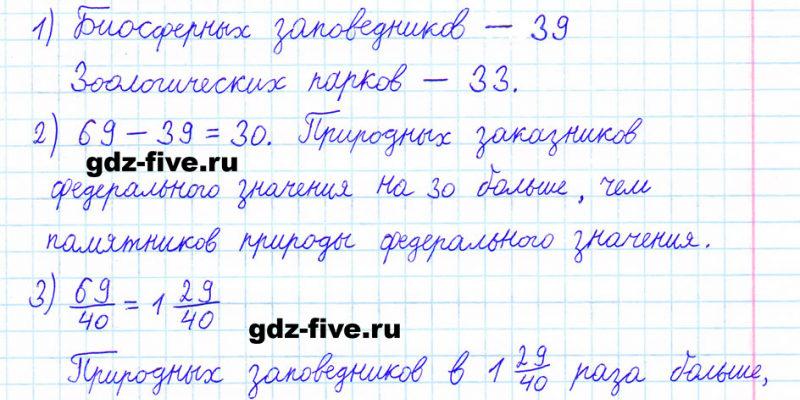 1) Биосферных заповедников – 39
Зоологических парков – 33.
2) 69 – 39 = 30. Природных заказников
gdz-five.ru
федерального значения на 30 больше, чем
памятников природы федерального значения.
3) 69/40 = 1 29/40
gdz-five.ru
Природных заповедников в 1 29/40 раза больше,